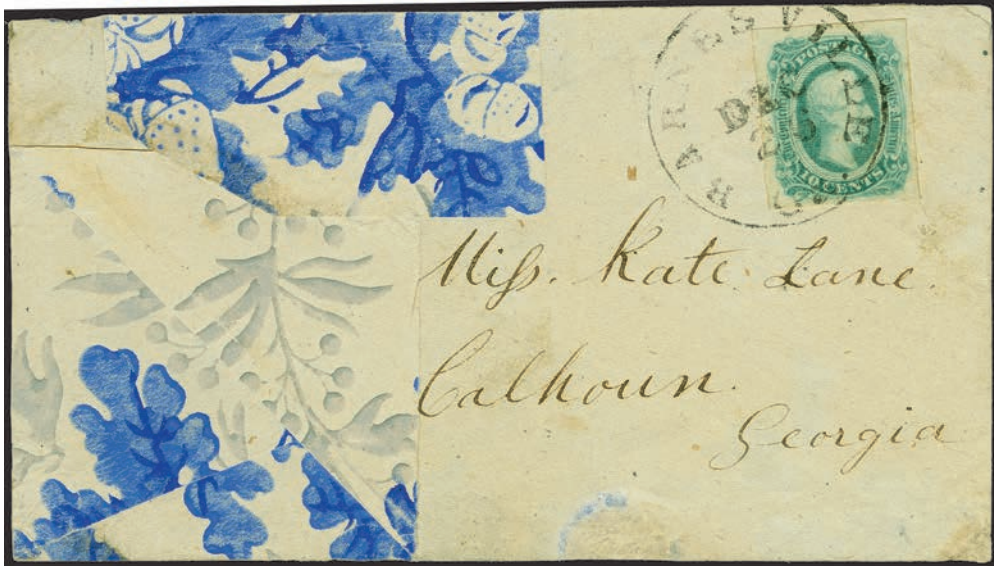 BARNESVILLE
DEC
POSTAGE
10 CENTS
Miss. Kate Lane.
Calhoun.
Georgia